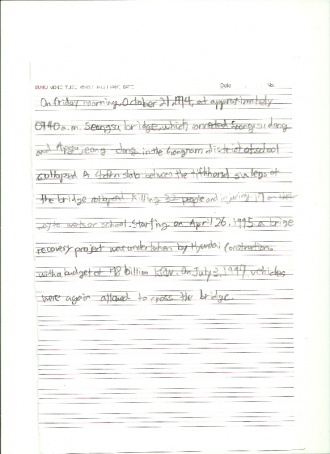 SUN MON TUE WED THU FRI SAT Date No.
On Friday morning, October 21, 1994, at approximately
0740 a.m. Seongsu bridge, which connected Seongsu dong
and Apgujeong dong in the Gangnam district of seoul
collapsed A slab between the fifth and six legs of
the bridge collapsed killing 32 people and injuring 17 on their
way to work or school. Starting on April 26, 1995 a brige
recovery project was undertaken by Hyundai Constructions
with a budget of 78 billion KRW. On July 3, 1997 vehicles
were again allowed to cross the bridge.